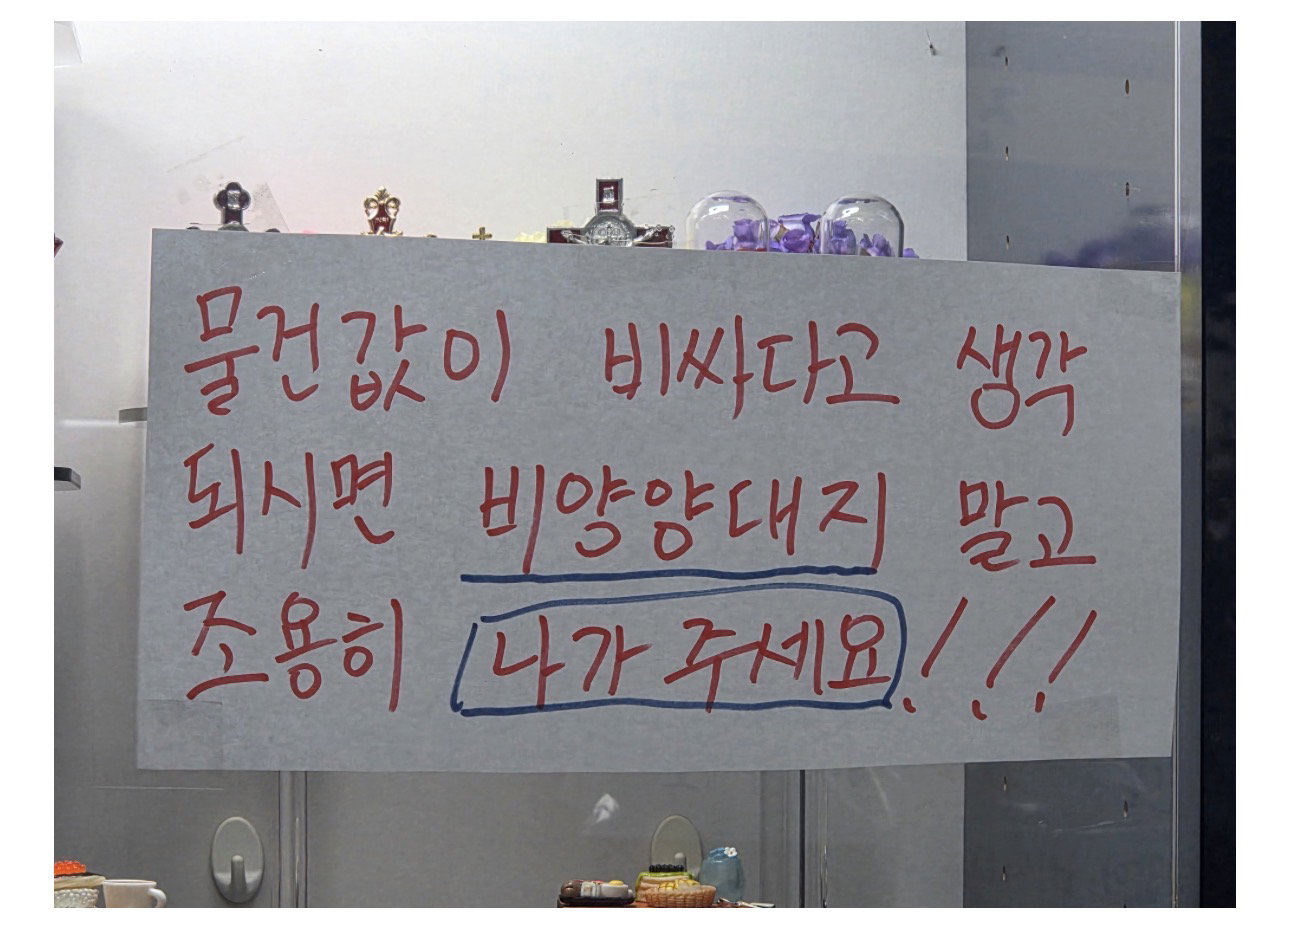 물건값이 비싸다고 생각
되시면 비양양대지 말고
조용히 나가 주세요!!!